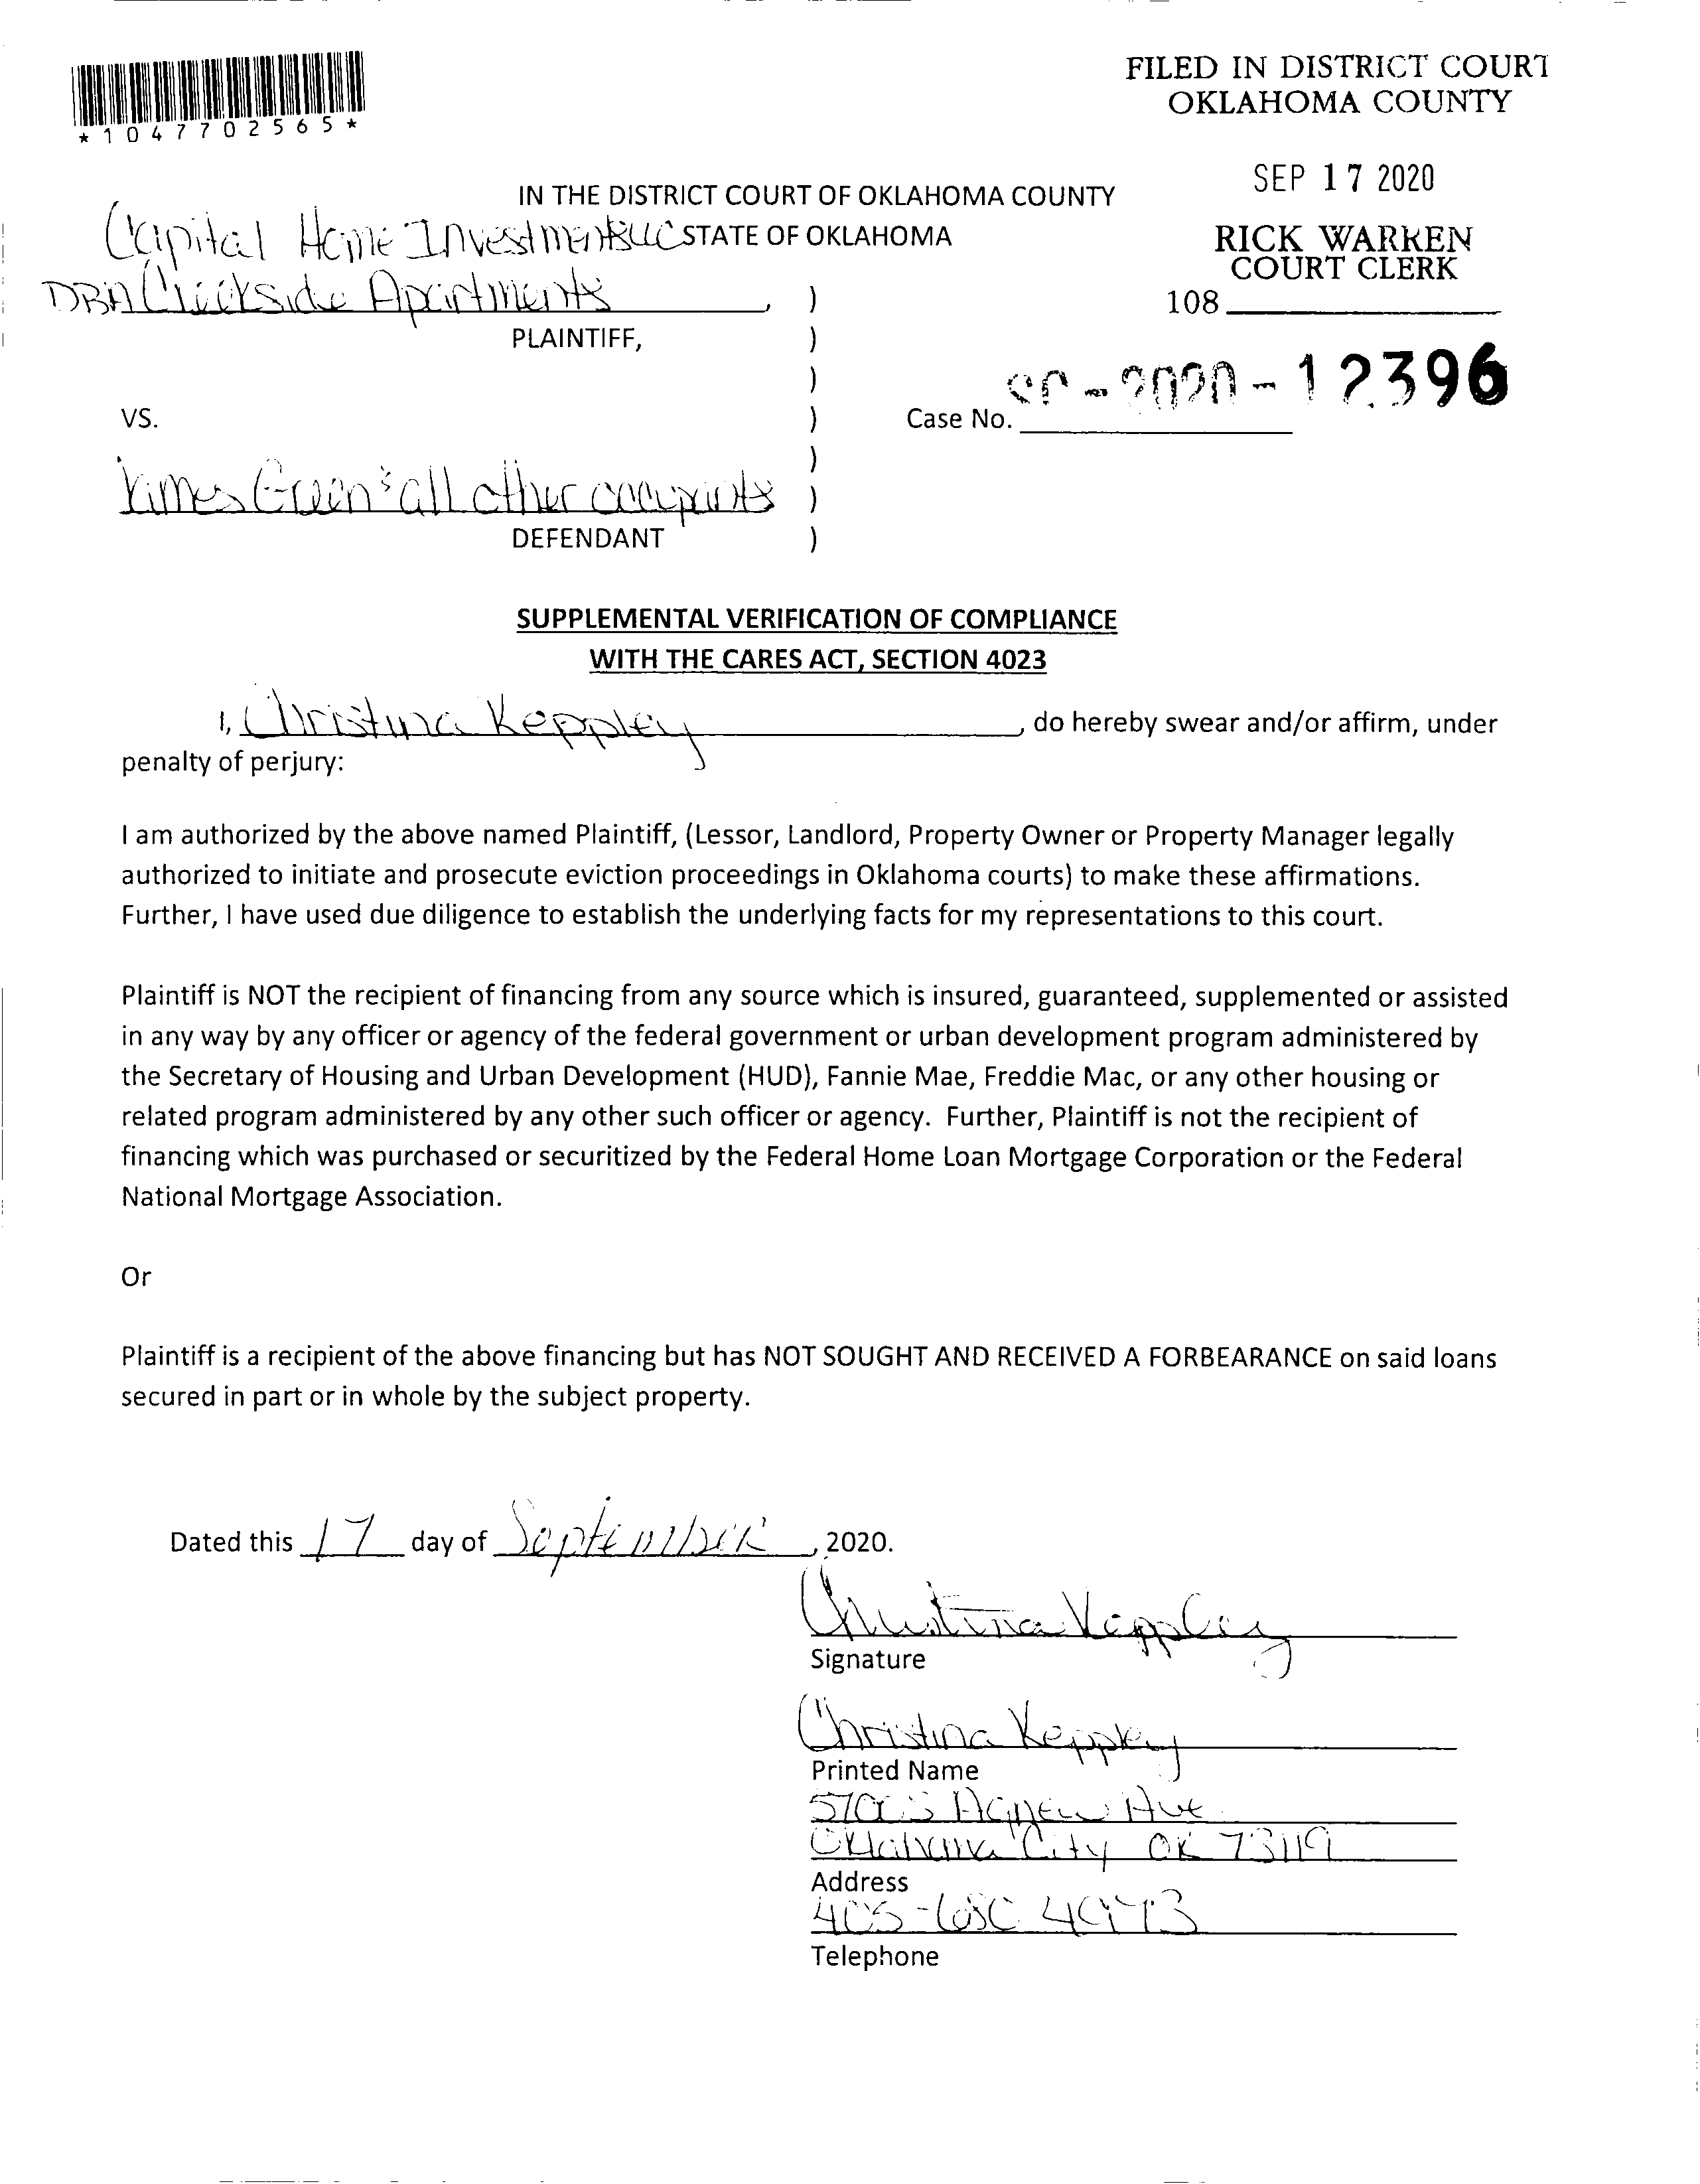 *1047702565*
FILED IN DISTRICT COURT
OKLAHOMA COUNTY
SEP 17 2020
RICK WARREN
COURT CLERK
108
IN THE DISTRICT COURT OF OKLAHOMA COUNTY
STATE OF OKLAHOMA
Capital Home Investments LLC
DBA Creekside Apartments,
PLAINTIFF,
VS.
Case No. SC-2020-12396
Green & all other occupants
DEFENDANT
SUPPLEMENTAL VERIFICATION OF COMPLIANCE
WITH THE CARES ACT, SECTION 4023
I, Christina Keppley, do hereby swear and/or affirm, under
penalty of perjury:
I am authorized by the above named Plaintiff, (Lessor, Landlord, Property Owner or Property Manager legally
authorized to initiate and prosecute eviction proceedings in Oklahoma courts) to make these affirmations.
Further, I have used due diligence to establish the underlying facts for my representations to this court.
Plaintiff is NOT the recipient of financing from any source which is insured, guaranteed, supplemented or assisted
in any way by any officer or agency of the federal government or urban development program administered by
the Secretary of Housing and Urban Development (HUD), Fannie Mae, Freddie Mac, or any other housing or
related program administered by any other such officer or agency. Further, Plaintiff is not the recipient of
financing which was purchased or securitized by the Federal Home Loan Mortgage Corporation or the Federal
National Mortgage Association.
Or
Plaintiff is a recipient of the above financing but has NOT SOUGHT AND RECEIVED A FORBEARANCE on said loans
secured in part or in whole by the subject property.
Dated this 17 day of September, 2020.
Christina Keppley
Signature
Christina Keppley
Printed Name
5700 S Agnew Ave
Oklahoma City OK 73119
Address
Telephone